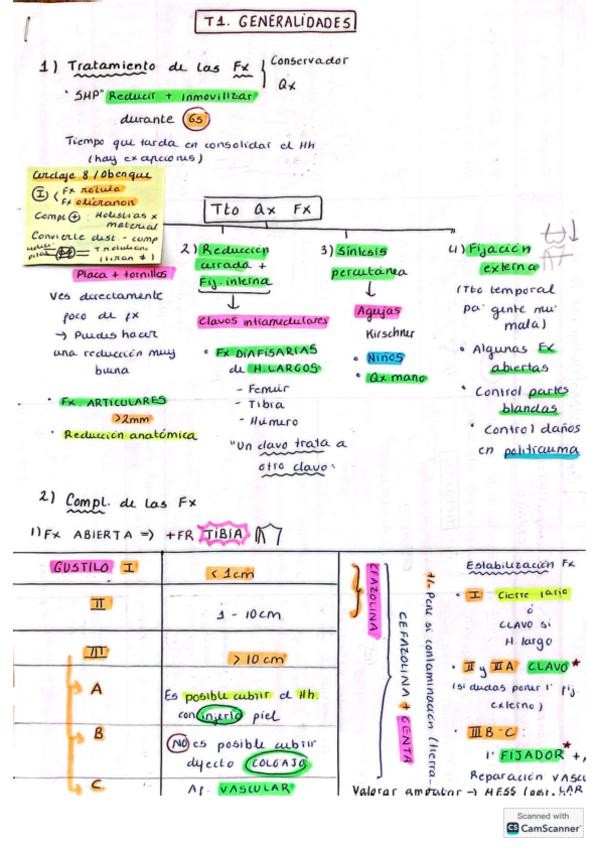 T1. GENERALIDADES
1) Tratamiento de las Fx { Conservador
Qx
"SHP" Reducir + inmovilizar
durante 6s
Tiempo que tarda en consolidar el Hh
(hay excepciones)
Cerclaje 8 / Obenque
I < Fx rótula
Fx olécranon
Compl ⊕: Molestias x
material
Convierte dist. - comp
Tto Qx Fx
Placa + tornillos
Ves directamente
foco de fx
→ Puedes hacer
una reducción muy
buena
• Fx. ARTICULARES
>2mm
• Reducción anatómica
2) Reducción
cerrada +
Fij. interna
↓
Clavos intramedulares
• Fx DIAFISARIAS
de H. LARGOS
- Femur
- Tibia
- Húmero
"Un clavo trata a
otro clavo"
3) Síntesis
percutánea
↓
Agujas
Kirschner
• Niños
• Qx mano
4) Fijación
externa
(Tto temporal
pa' gente mu'
mala)
• Algunas Fx
abiertas
• Control partes
blandas
• Control daños
en politrauma
2) Compl. de las Fx
1) Fx ABIERTA => +FR TIBIA
GUSTILO I < 1cm
II 1 - 10cm
III > 10 cm
A Es posible cubrir el Hh.
con injerto piel
B NO es posible cubrir
dyecto COLGAJO
C. Ap. VASCULAR
CEFAZOLINA
CEFAZOLINA + GENTA
+/- Peni si contaminación (tierra-
Estabilización Fx
• I Cierre 1ario
ó
CLAVO si
H. largo
• II y IIIA CLAVO*
(si dudas poner 1º fij.
externo)
• IIIB-C:
1º FIJADOR* +,
Reparación VASCU
Valorar amputar → MESS
Scanned with
CS CamScanner